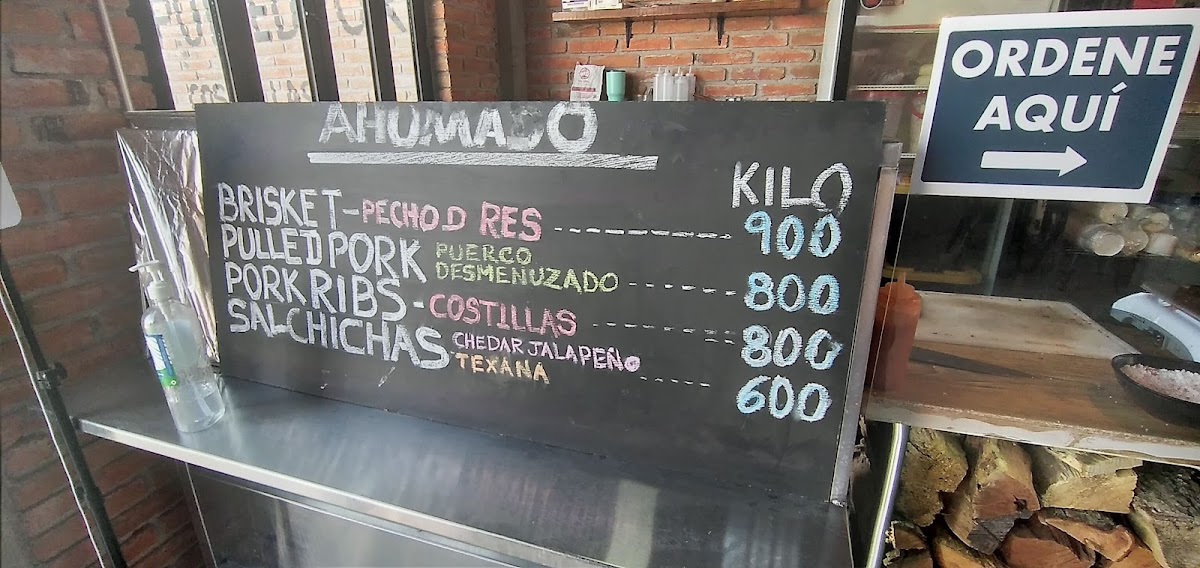 AHUMADO
KILO
BRISKET-PECHO D RES ----------- 900
PULLED PORK PUERCO
DESMENUZADO ------- 800
PORK RIBS - COSTILLAS --------- 800
SALCHICHAS CHEDAR JALAPEÑO
TEXANA ----- 600
ORDENE
AQUÍ